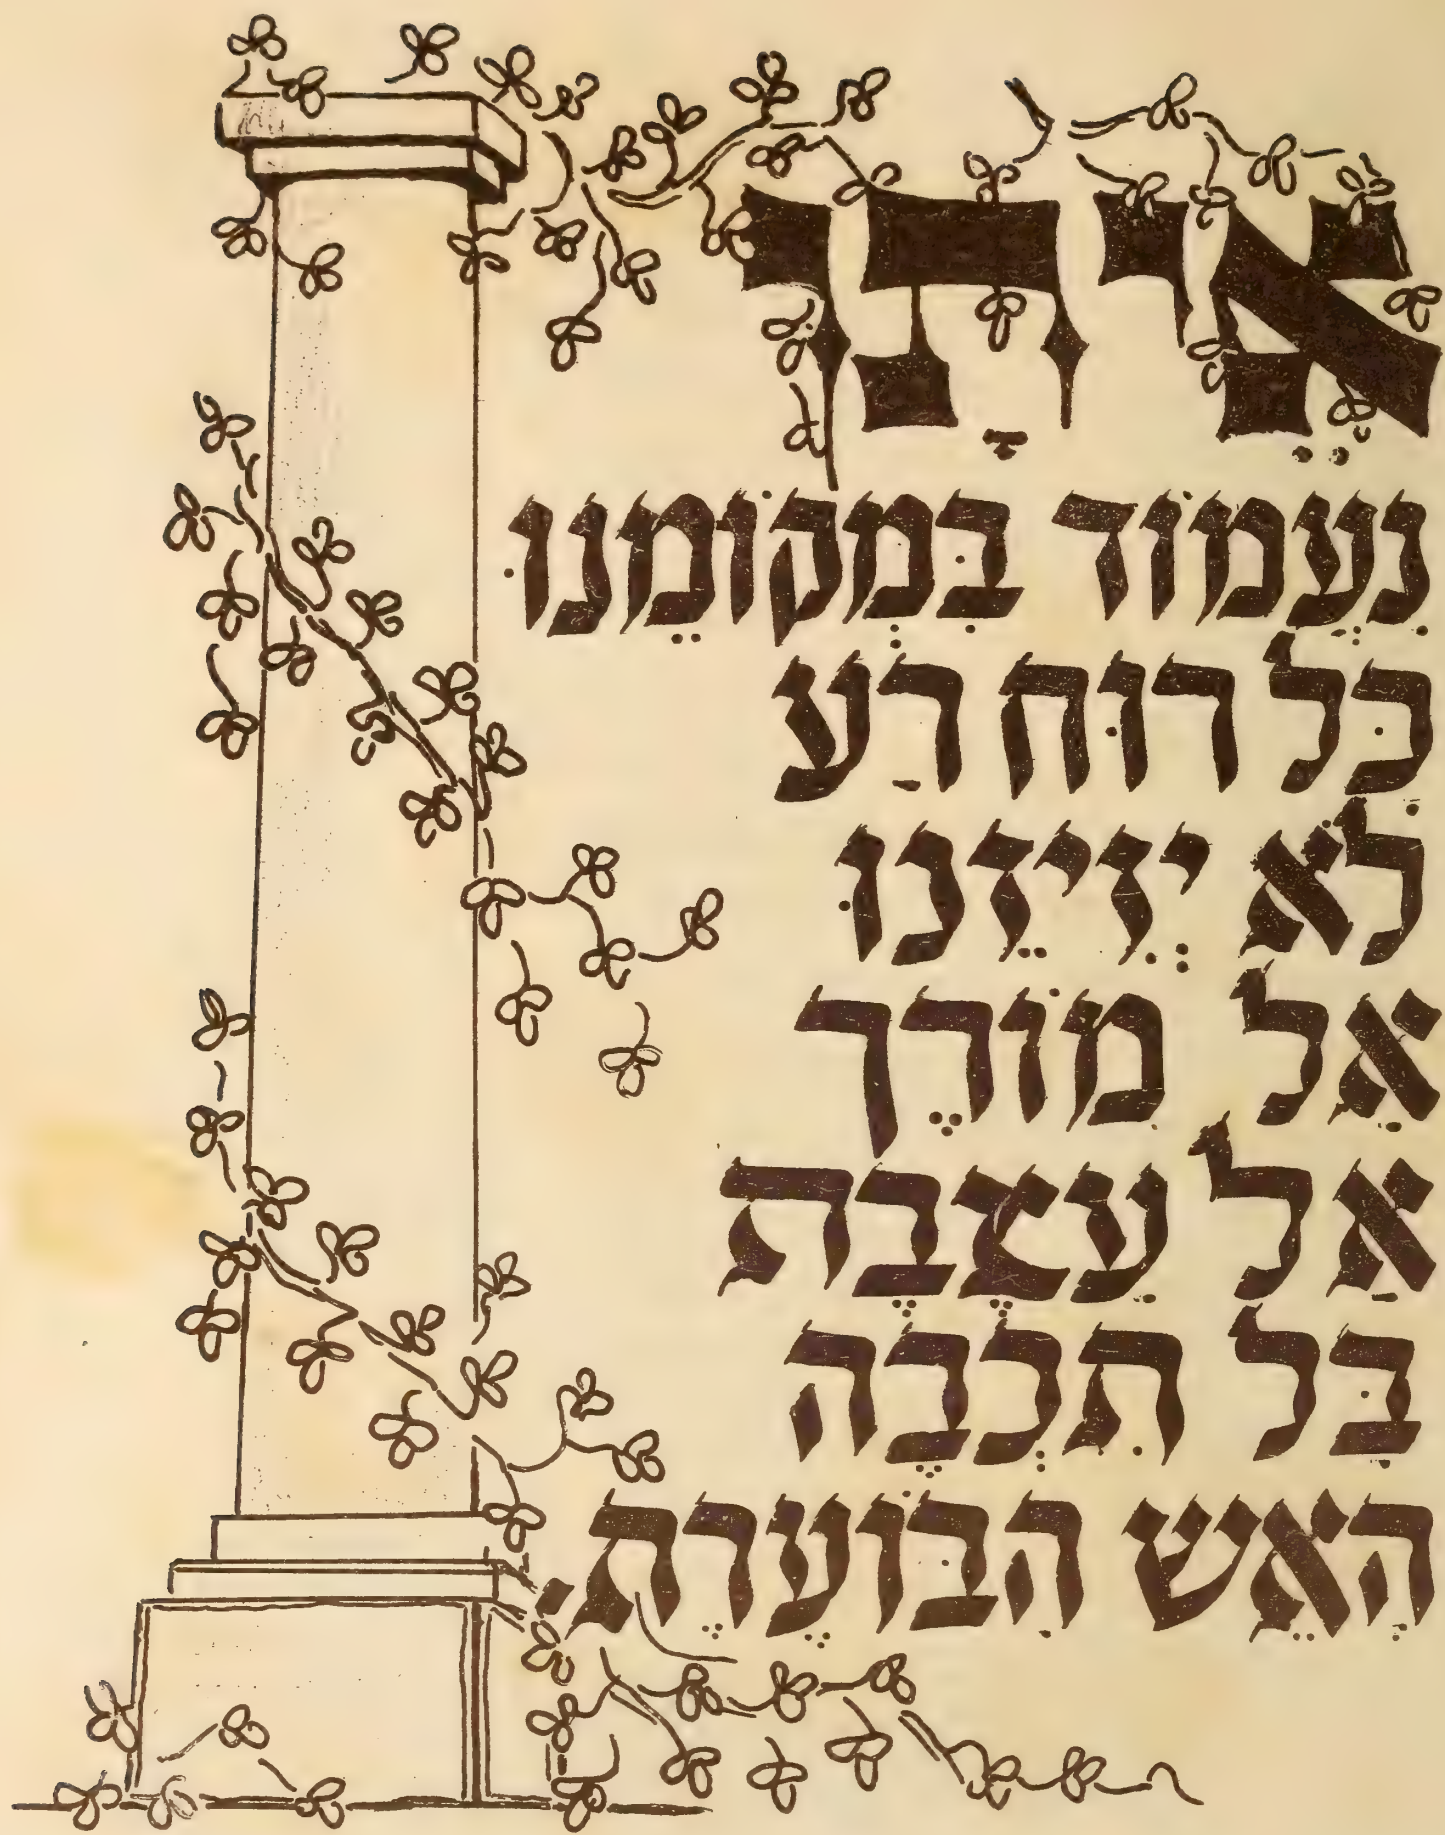 אֵיתָן
נַעֲמוֹד בִּמְקוֹמֵנוּ
כָּל רוּח רַע
לֹא יְזִיזֵנוּ
אַל מוֹרֶך
אַל עַצֶבֶת
בַּל תִכְבֶה
הָאֵש הַבּוֹעֶרֶת.